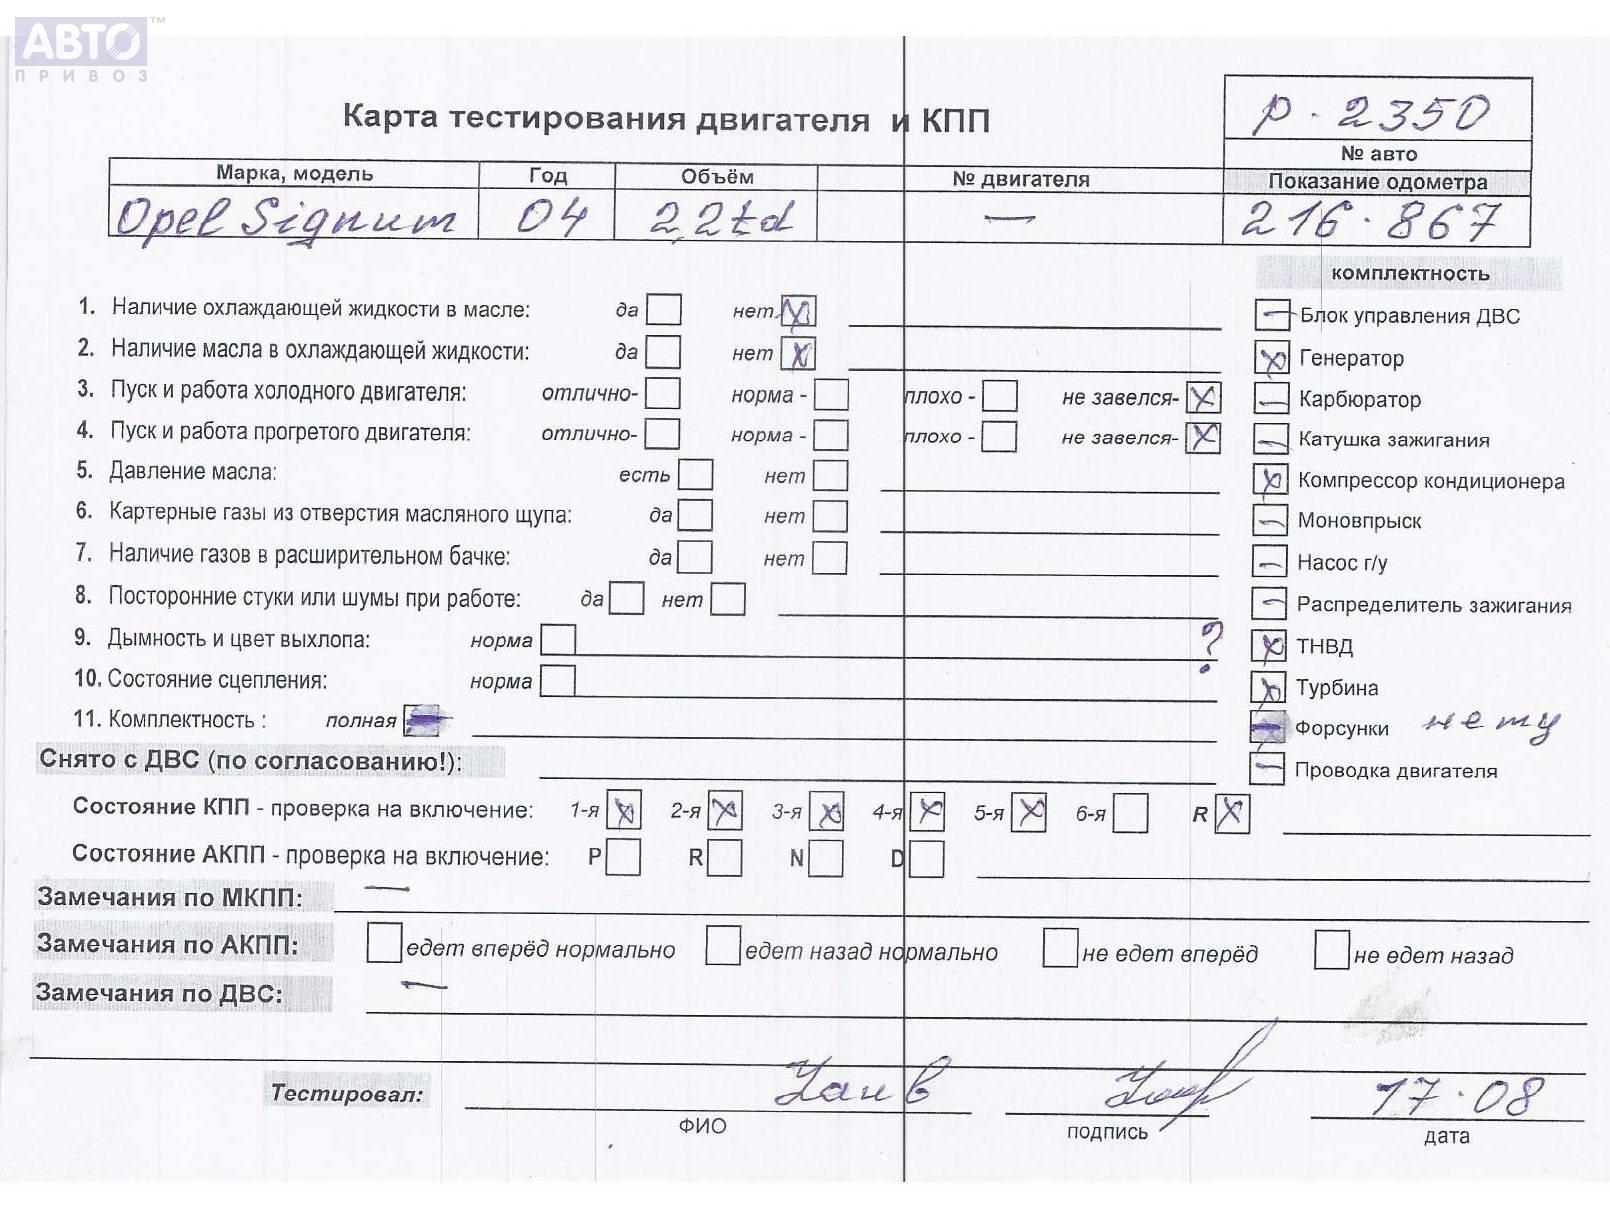 АВТО™
ПРИВОЗ
Карта тестирования двигателя и КПП
р - 2350
№ авто
Марка, модель Год Объём № двигателя Показание одометра
Opel Signum 04 2,2td — 216.867
комплектность
1. Наличие охлаждающей жидкости в масле: да нет X
— Блок управления ДВС
2. Наличие масла в охлаждающей жидкости: да нет X
X Генератор
3. Пуск и работа холодного двигателя: отлично- норма - плохо - не завелся- X
— Карбюратор
4. Пуск и работа прогретого двигателя: отлично- норма - плохо - не завелся- X
— Катушка зажигания
5. Давление масла: есть нет
X Компрессор кондиционера
6. Картерные газы из отверстия масляного щупа: да нет
— Моновпрыск
7. Наличие газов в расширительном бачке: да нет
— Насос г/у
8. Посторонние стуки или шумы при работе: да нет
— Распределитель зажигания
9. Дымность и цвет выхлопа: норма ?
X ТНВД
10. Состояние сцепления: норма
X Турбина
11. Комплектность : полная —
— Форсунки нету
Снято с ДВС (по согласованию!):
— Проводка двигателя
Состояние КПП - проверка на включение: 1-я X 2-я X 3-я X 4-я X 5-я X 6-я R X
Состояние АКПП - проверка на включение: P R N D
Замечания по МКПП: —
Замечания по АКПП: едет вперёд нормально едет назад нормально не едет вперёд не едет назад
Замечания по ДВС: —
Тестировал: 17.08
ФИО подпись дата